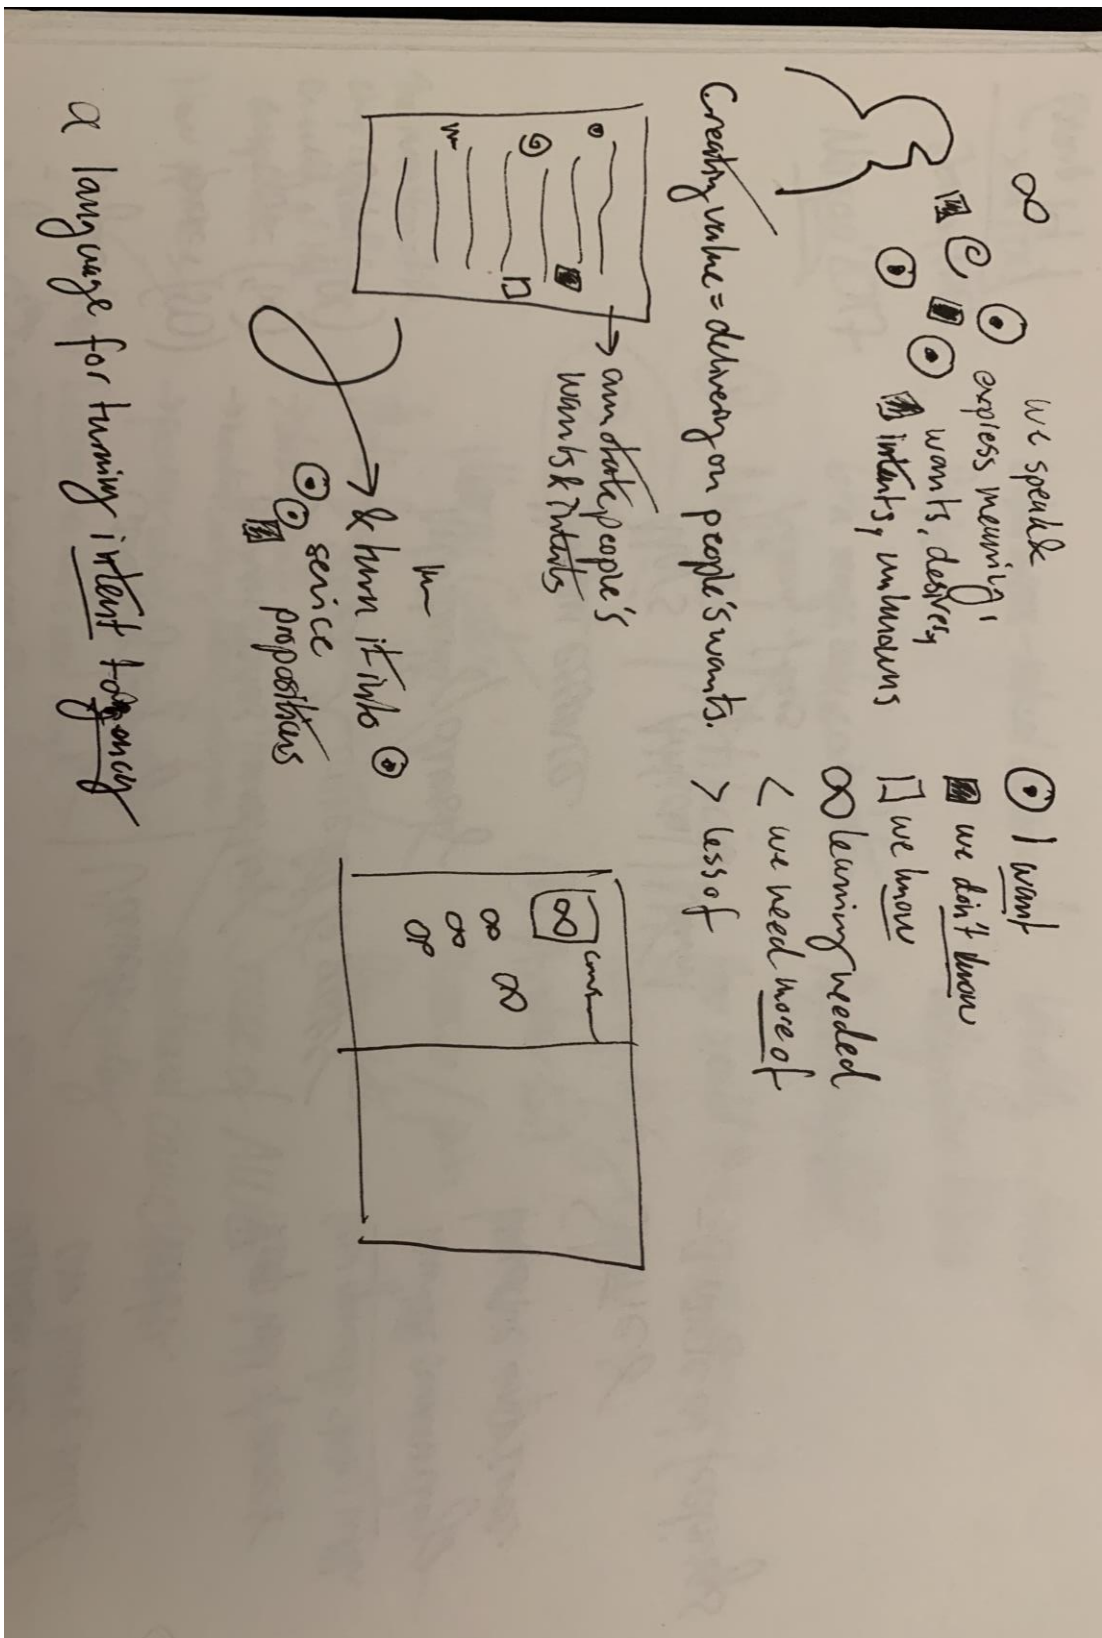 ∞ we speak &
express meaning,
wants, desires,
intents, unknowns
⊙ I want
▩ we don't know
□ we know
∞ learning needed
< we need more of
> less of
Creating value = delivering on people's wants.
→ annotate people's
wants & intents
& turn it into ⊙
service
propositions
∞
∞
∞
∞
∞
a language for turning intent to agency